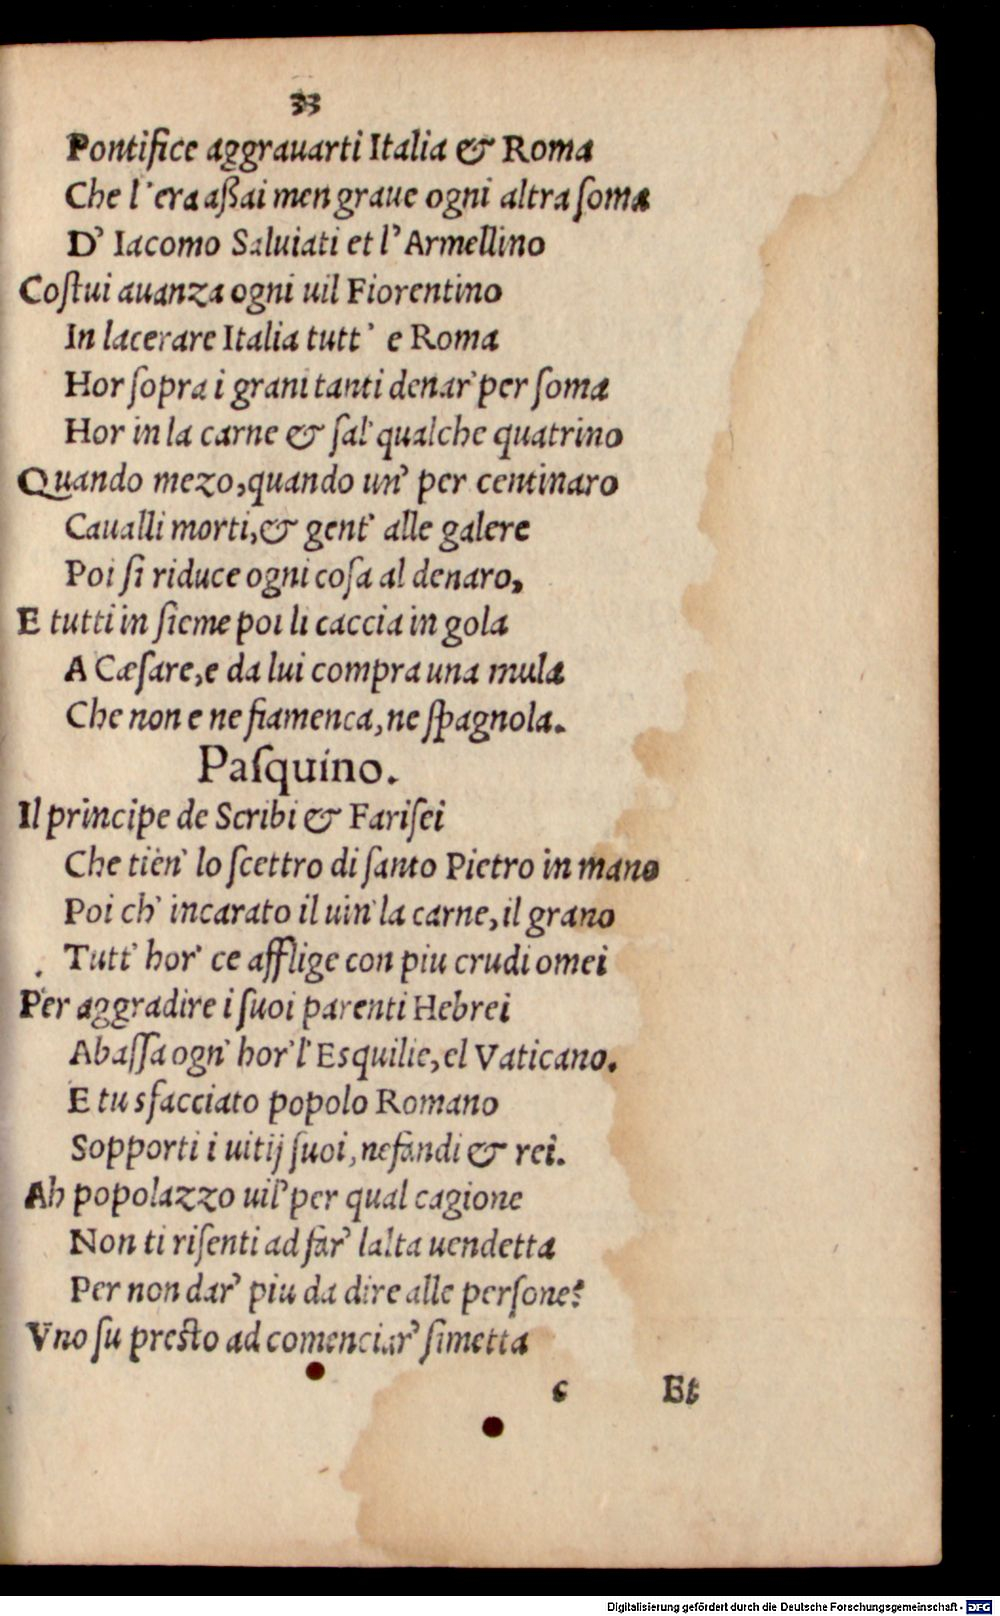 33
Pontifice aggrauarti Italia & Roma
Che l'era aßai men graue ogni altra ſoma
D' Iacomo Saluiati et l' Armellino
Coſtui auanza ogni uil Fiorentino
In lacerare Italia tutt' e Roma
Hor ſopra i grani tanti denar' per ſoma
Hor in la carne & ſal' qualche quatrino
Quando mezo, quando un' per centinaro
Caualli morti, & gent' alle galere
Poi ſi riduce ogni coſa al denaro,
E tutti in ſieme poi li caccia in gola
A Cæſare, e da lui compra una mula
Che non e ne fiamenca, ne ſpagnola.
Paſquino.
Il principe de Scribi & Fariſei
Che tien' lo ſcettro di ſanto Pietro in mano
Poi ch' incarato il uin' la carne, il grano
Tutt' hor' ce afflige con piu crudi omei
Per aggradire i ſuoi parenti Hebrei
Abaſſa ogn' hor' l' Esquilie, el Vaticano.
E tu sfacciato popolo Romano
Sopporti i uitij ſuoi, nefandi & rei.
Ah popolazzo uil' per qual cagione
Non ti riſenti ad far' lalta uendetta
Per non dar' piu da dire alle perſone?
Vno ſu preſto ad comenciar' ſimetta
c Et
Digitalisierung gefördert durch die Deutsche Forschungsgemeinschaft - DFG